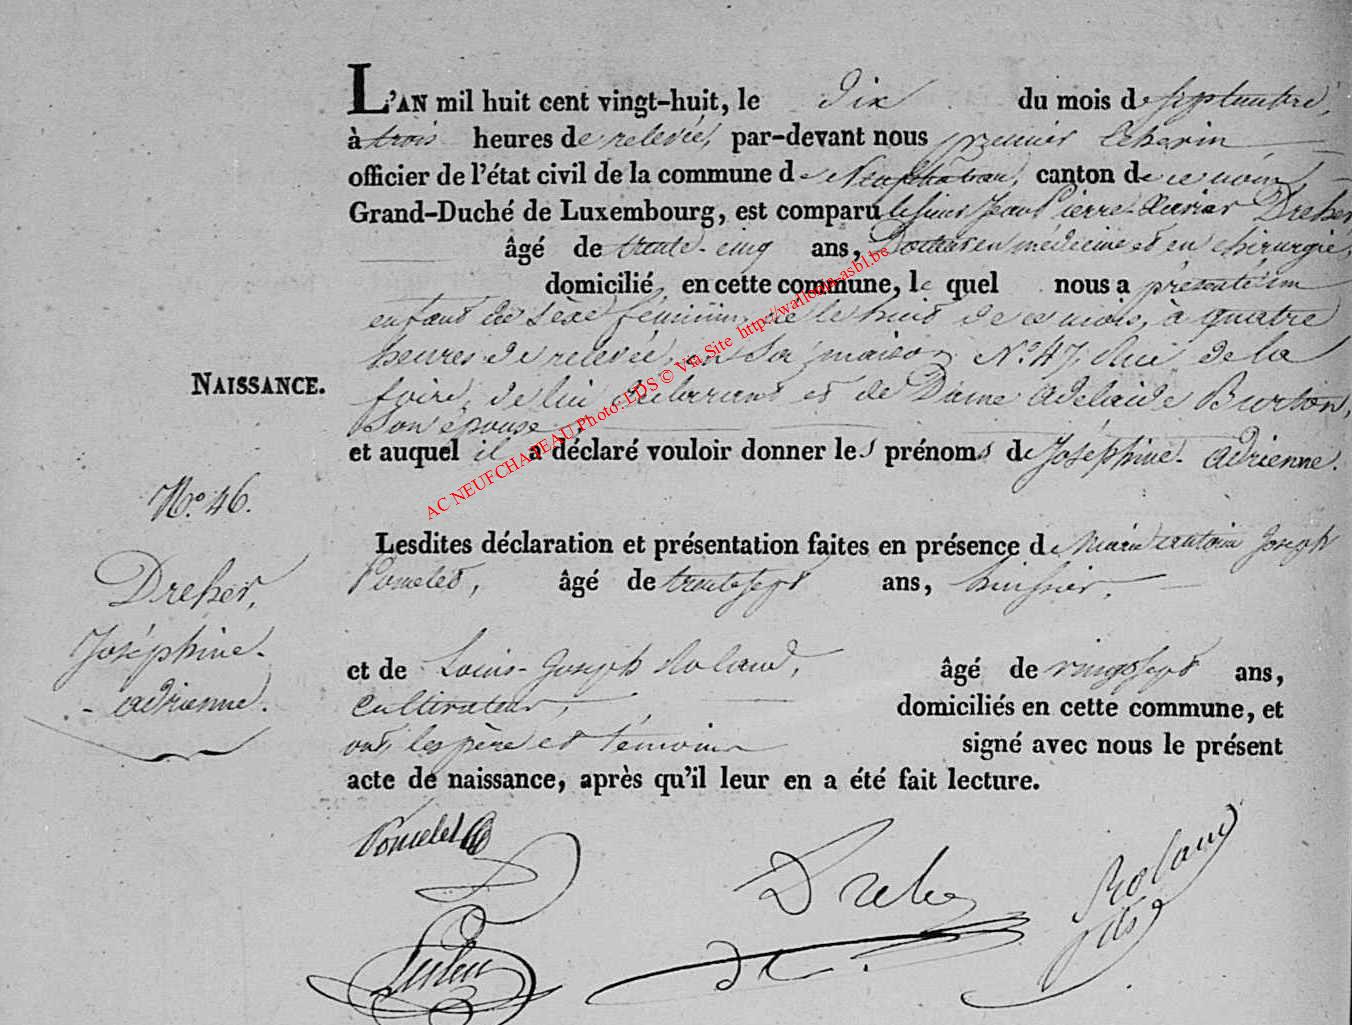 L'AN mil huit cent vingt-huit, le dix du mois de septembre,
à trois heures de relevée, par-devant nous premier Echevin
officier de l'état civil de la commune de Neufchâteau, canton de ce nom
Grand-Duché de Luxembourg, est comparu le sieur Jean Pierre Xavier Dreher,
âgé de trente-cinq ans, Docteur en médecine et en chirurgie,
domicilié, en cette commune, le quel nous a présenté un
enfant du sèxe féminin, né le huit de ce mois, à quatre
heures de relevée, en sa maison N.o 47, Rue de la
foire, de lui déclarant et de Dame Adelaïde Burton,
son épouse,
et auquel il a déclaré vouloir donner les prénoms de Joséphine-adrienne.
NAISSANCE.
N.o 46.
Dreher,
Joséphine-
-adrienne.
Lesdites déclaration et présentation faites en présence de Joseph
Pomelet, âgé de trente sept ans, huissier,
et de Louis-Joseph Roland, âgé de vingt sept ans,
cultivateur, domiciliés en cette commune, et
ont, les père et témoins signé avec nous le présent
acte de naissance, après qu'il leur en a été fait lecture.
Pomelet
Dreher
Roland
fils
AC NEUFCHATEAU Photo: EDS © Via Site http://wallonia-asbl.be